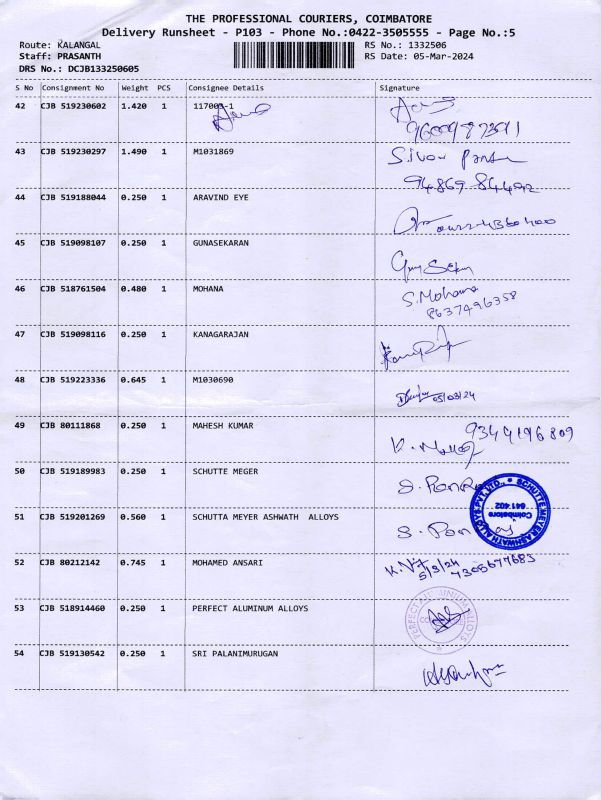 THE PROFESSIONAL COURIERS, COIMBATORE
Delivery Runsheet - P103 - Phone No.:0422-3505555 - Page No.:5
Route: KALANGAL RS No.: 1332506
Staff: PRASANTH RS Date: 05-Mar-2024
DRS No.: DCJB133250605
S No Consignment No Weight PCS Consignee Details Signature
42 CJB 519230602 1.420 1 117003-1
43 CJB 519230297 1.490 1 M1031869
94869 84492
44 CJB 519188044 0.250 1 ARAVIND EYE
45 CJB 519098107 0.250 1 GUNASEKARAN
46 CJB 518761504 0.480 1 MOHANA S.Mohana
8637496358
47 CJB 519098116 0.250 1 KANAGARAJAN
48 CJB 519223336 0.645 1 M1030690
05/03/24
49 CJB 80111868 0.250 1 MAHESH KUMAR 9344196809
50 CJB 519189983 0.250 1 SCHUTTE MEGER
SCHUTTE MEYER ASHWATH ALLOYS PVT. LTD.,
Coimbatore
641 402
51 CJB 519201269 0.560 1 SCHUTTA MEYER ASHWATH ALLOYS
52 CJB 80212142 0.745 1 MOHAMED ANSARI
5/3/24 7305677683
53 CJB 518914460 0.250 1 PERFECT ALUMINUM ALLOYS
54 CJB 519130542 0.250 1 SRI PALANIMURUGAN